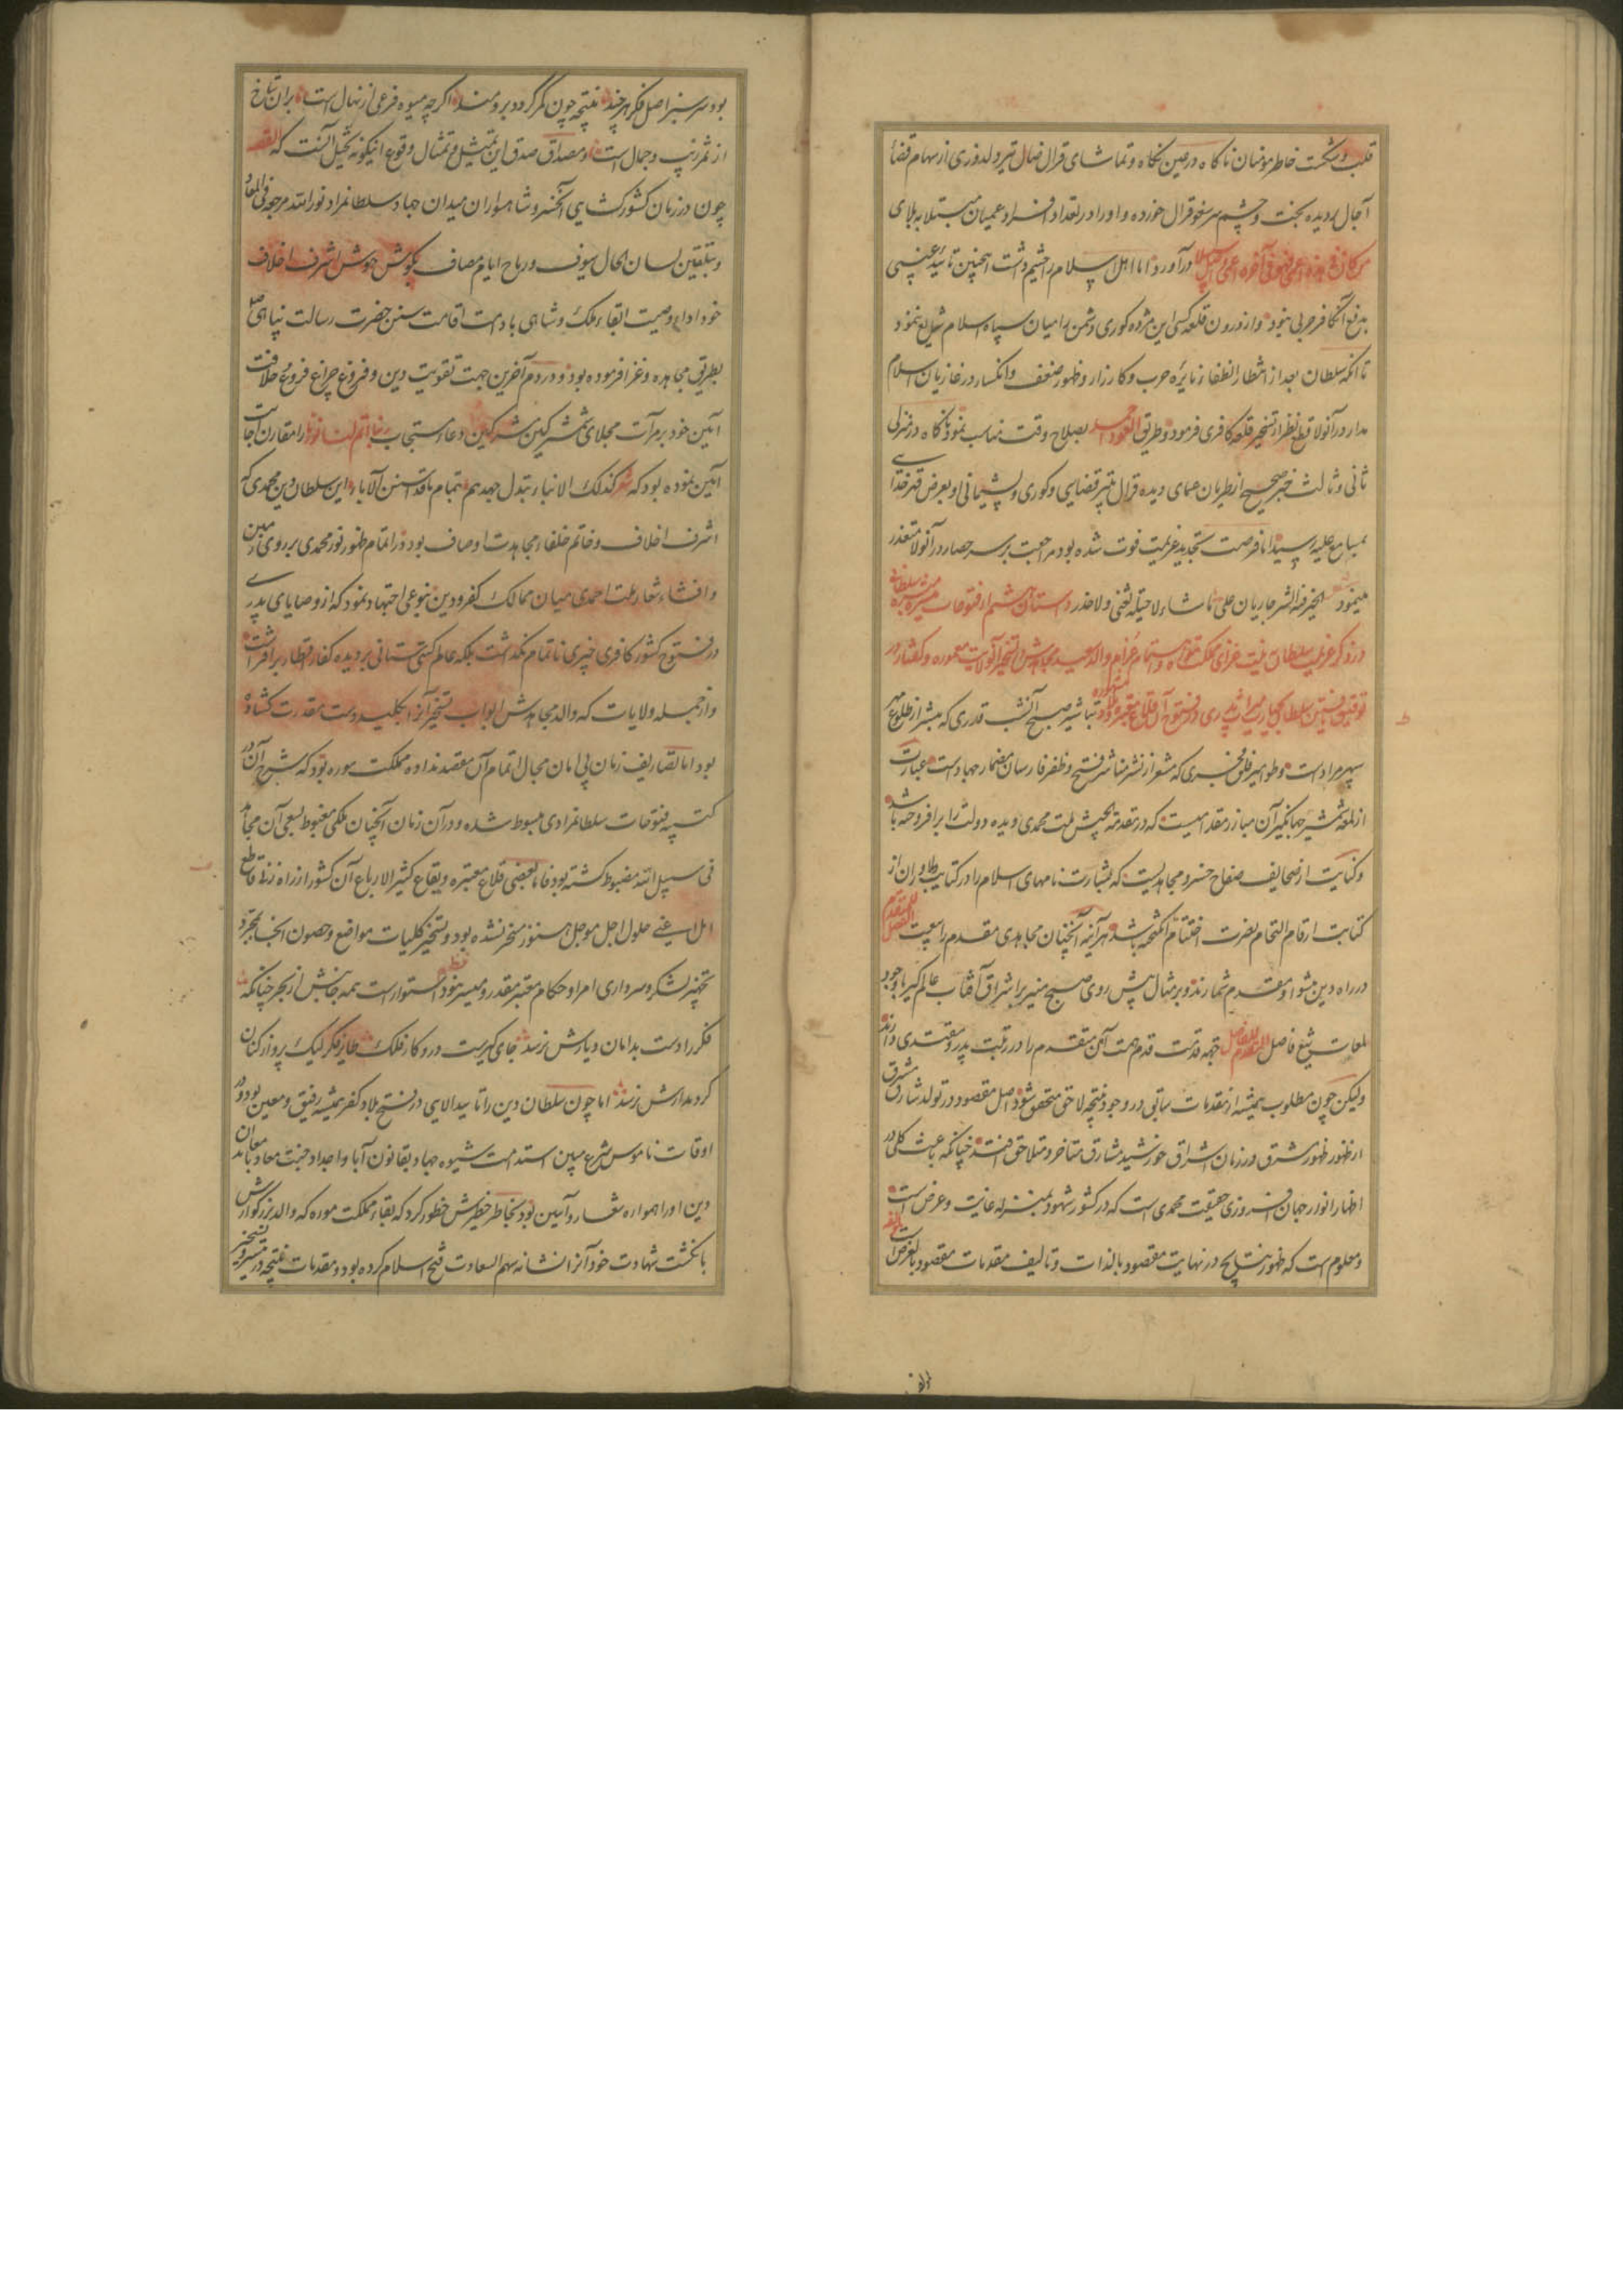 قلب و شکست خاطر مومنان ناکاه در عین نکاه و تماشای قرال ضال تیر دلدوزی از سهام قضا
آجال بر دیده بخت و چشم سر خود قرال خورده و او را در تعداد افراد عمیان مبتلا به بلای
من کان فی هذه اعمی فهو فی الآخرة اعمی و اضل سبیلا در آورد اما اهل اسلام را چشم داشت اینچنین تایید غیبی
بدفع آن کافر حربی نبود و از درون قلعه کسی این مژده کوری دشمن را میان سپاه اسلام شایع ننمود
تا آنکه سلطان بعد از انتظار انطفا نایره حرب و کارزار و ظهور ضعف و انکسار در غازیان اسلام
مدار در آنولا قطع نظر از تسخیر قلعه کافری فرمود و طریق العود احمد بصلاح وقت مناسب نمود ناکاه در منزلی
ثانی و ثالث خبر صحیح از طریان عمای دیده قرال بتیر قضایی و کوری و پشیمانی او بعرض قهر خدا
بمسامع علیه رسید اما فرصت تجدید عزیمت فوت شده بود مراجعت بر سر حصار در آنولا متعذر
مینمود الخیر فیه الشر جاریان علی ما شاء لا حیلة تغنی و لا حذر داستان ششم از فتوحات میسره سلطانی
در ذکر عزیمت سلطان بنیت غزای مملکت موره و استتمام عزایم والد سعید مجاهدش در تسخیر آن ولایت معموره و گفتار در
توفیق یافتن سلطان بمیراث پدری در فتوح آن قلاع تباشیر صبح آنشب قدری که مبشر از طلوع مهر
سپهر مراد است و طوامیر فلق فجری که مشعر از نشر مناشر فتح و ظفر فارسان مضمار جهاد است عبارت
از لمعه شمشیر جهانگیر آن مبارز مقدامیست که در مقدمه جیش ملت محمدی دیده دولت را برافروخته باشد
و کنایت از صحایف صفاح خسرو مجاهدیست که بشارت نامهای اسلام را در کتایب دلاوران از
کتابت ارقام التحام نصرت اختتام انگیخته باشد هر آینه آنچنان مجاهدی مقدم را بموجب الفضل للمتقدم
در راه دین پیشوا و مقدم شمارند و بر مثال پیش روی صبح منیر بر اشراق آفتاب عالم گیر با وجود
لمعات تیغ فاصل جهة قدمت قدم همت آن متقدم را در رتبت پدر و مقتدی دارند
ولیکن چون مطلوب همیشه از مقدمات سابق در وجود نتیجه لاحق متحقق شود اصل مقصود در تولد شارق مشرق
از ظهور ظهور مشرق در زمان اشراق خورشید مشارق متاخر و متلاحق افتد چنانکه باعث کلی در
اظهار انوار جهان افروزی حقیقت محمدی است که در کشور شهود بمنزله غایت و غرض است
و معلوم است که ظهور نتایج در نهایت مقصود بالذات و تالیف مقدمات مقصود بالعرض است
بود سرسبز اصل فکر هر چند نتیجه چون مگر گردد برومند اگرچه میوه فرعی از نهال است بران شاخ
از ثمر زیب و جمال است و مصداق صدق این تمثیل و تمثال وقوع اینگونه تخیل آنست که القصه
چون در زمان کشور کشایی آن خسرو شاهسواران میدان جهاد سلطانمراد نور الله مرجعه فی المعاد
و بتلقین لسان الحال سیوف و رماح ایام مصاف بگوش هوش اشرف اخلاف
خود ادای وصیت ابقاء ملک و شاهی بادامت اقامت سنن حضرت رسالت پناهی صلعم
بطریق مجاهده و غزا فرموده بود و در دم آخرین جهت تقویت دین و فروغ چراغ فروع خلافت
آیین خود بر مرآت مجلای شمشیر کین مشرکین دعاء مستجاب ربنا اتمم لنا نورنا را مقارن اجابت
آمین نموده بود که شعر کذلک الانبار تبدل جهدهم بتمام ما قد اسسن الآباء این سلطان دین محمدی که
اشرف اخلاف و خاتم خلفاء مجاهدت اوصاف بود در اتمام ظهور نور محمدی بر روی زمین
و افشاء شعار ملت احمدی میان ممالک کفر و دین بنوعی اجتهاد نمود که از وصایای پدری
در فتوح کشور کافری چیزی ناتمام نگذاشت بلکه علم گیتی ستانی بر دیده کفار اقطار برافراشت
و از جمله ولایات که والد مجاهدش ابواب تسخیر آنرا بکلید دست مقدرت کشاده
بود اما تصاریف زمان بی امان مجال اتمام آن مقصد نداده مملکت موره بود که شرح آن در
کتیبه فتوحات سلطانمرادی مبسوط شده و در آن زمان آنچنان ملکی مغبوط بسعی آن مجاهد
فی سبیل الله مضبوط گشته بود فاما بعضی قلاع معتبره و بقاع کثیر الارباع آن کشور از راه نزه قاطع
امل یعنی حلول اجل موجل هنوز مسخر نشده بود و تسخیر کلیات مواضع و حصون انجا بمجرد
تجهیز لشکر و سرداری امرا و حکام معتبر مقدر و میسر نبود نظم استوار است همه جانبش از بحر چنانکه
فکر را دست بدامان دیارش نرسد جای کیریست درو کار فلک طایر فکر لیک پرواز کنان
کرد مدارش نرسد اما چون سلطان دین را تایید الهی در فتح بلاد کفر همیشه رفیق و معین بود و در
اوقات ناموس شرع مبین استدامت شیوه جهاد بقانون آبا و اجداد جنت معاد با معاندان
دین او را همواره شعار و آیین بود بخاطر خطیرش خطور کرد که بقاء مملکت موره که والد بزرگوارش
با نگشت شهادت خود آنرا نشانه سهم السعادت فتح اسلام کرده بود و مقدمات نتیجه در تیسیر و تسخیر